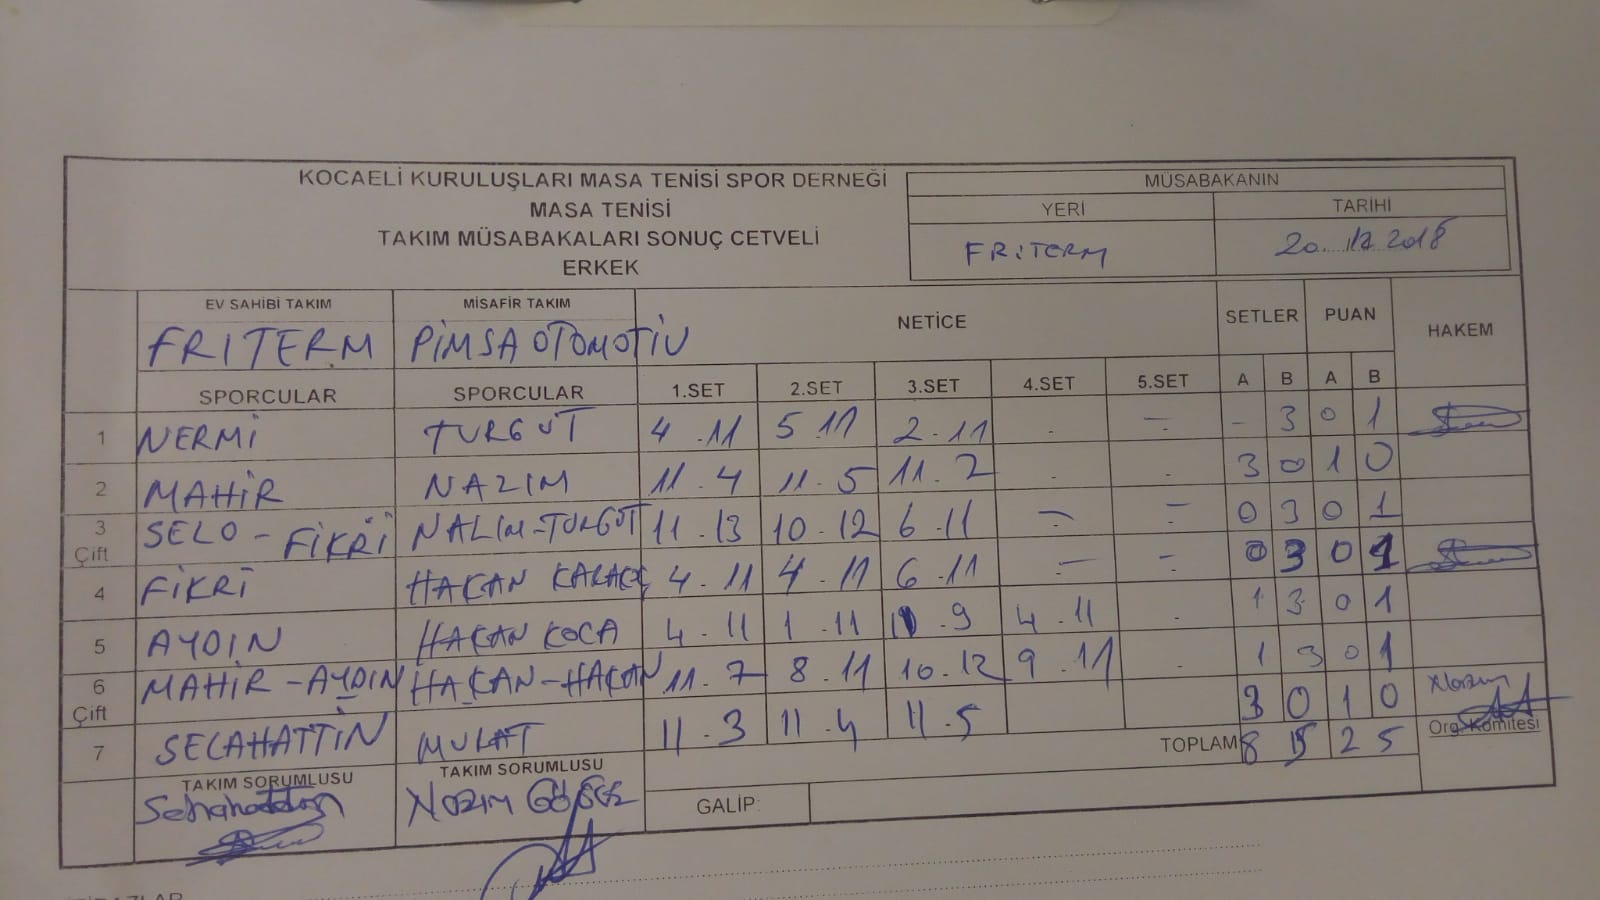 KOCAELİ KURULUŞLARI MASA TENİSİ SPOR DERNEĞİ
MASA TENİSİ
TAKIM MÜSABAKALARI SONUÇ CETVELİ
ERKEK
MÜSABAKANIN
YERİ TARİHİ
FRİTERM 20.12.2018
EV SAHİBİ TAKIM MİSAFİR TAKIM NETİCE SETLER PUAN HAKEM
FRİTERM PİMSA OTOMOTİV
SPORCULAR SPORCULAR 1.SET 2.SET 3.SET 4.SET 5.SET A B A B
1 NERMİ TURGUT 4.11 5.11 2.11 . - - 3 0 1
2 MAHİR NAZIM 11.4 11.5 11.2 . . 3 0 1 0
3 Çift SELO - FİKRİ NAZIM-TURGUT 11.13 10.12 6.11 - - 0 3 0 1
4 FİKRİ HAKAN 4.11 4.11 6.11 - - 0 3 0 1
5 AYDIN HAKAN KOCA 4.11 1.11 11.9 4.11 . 1 3 0 1
6 Çift MAHİR - AYDIN HAKAN-HAKAN 11.7 8.11 10.12 9.11 . 1 3 0 1
7 SELAHATTİN MURAT 11.3 11.4 11.5 3 0 1 0
TOPLAM 8 15 2 5
Org. Komitesi
TAKIM SORUMLUSU TAKIM SORUMLUSU
Selahattin NAZIM
GALİP: